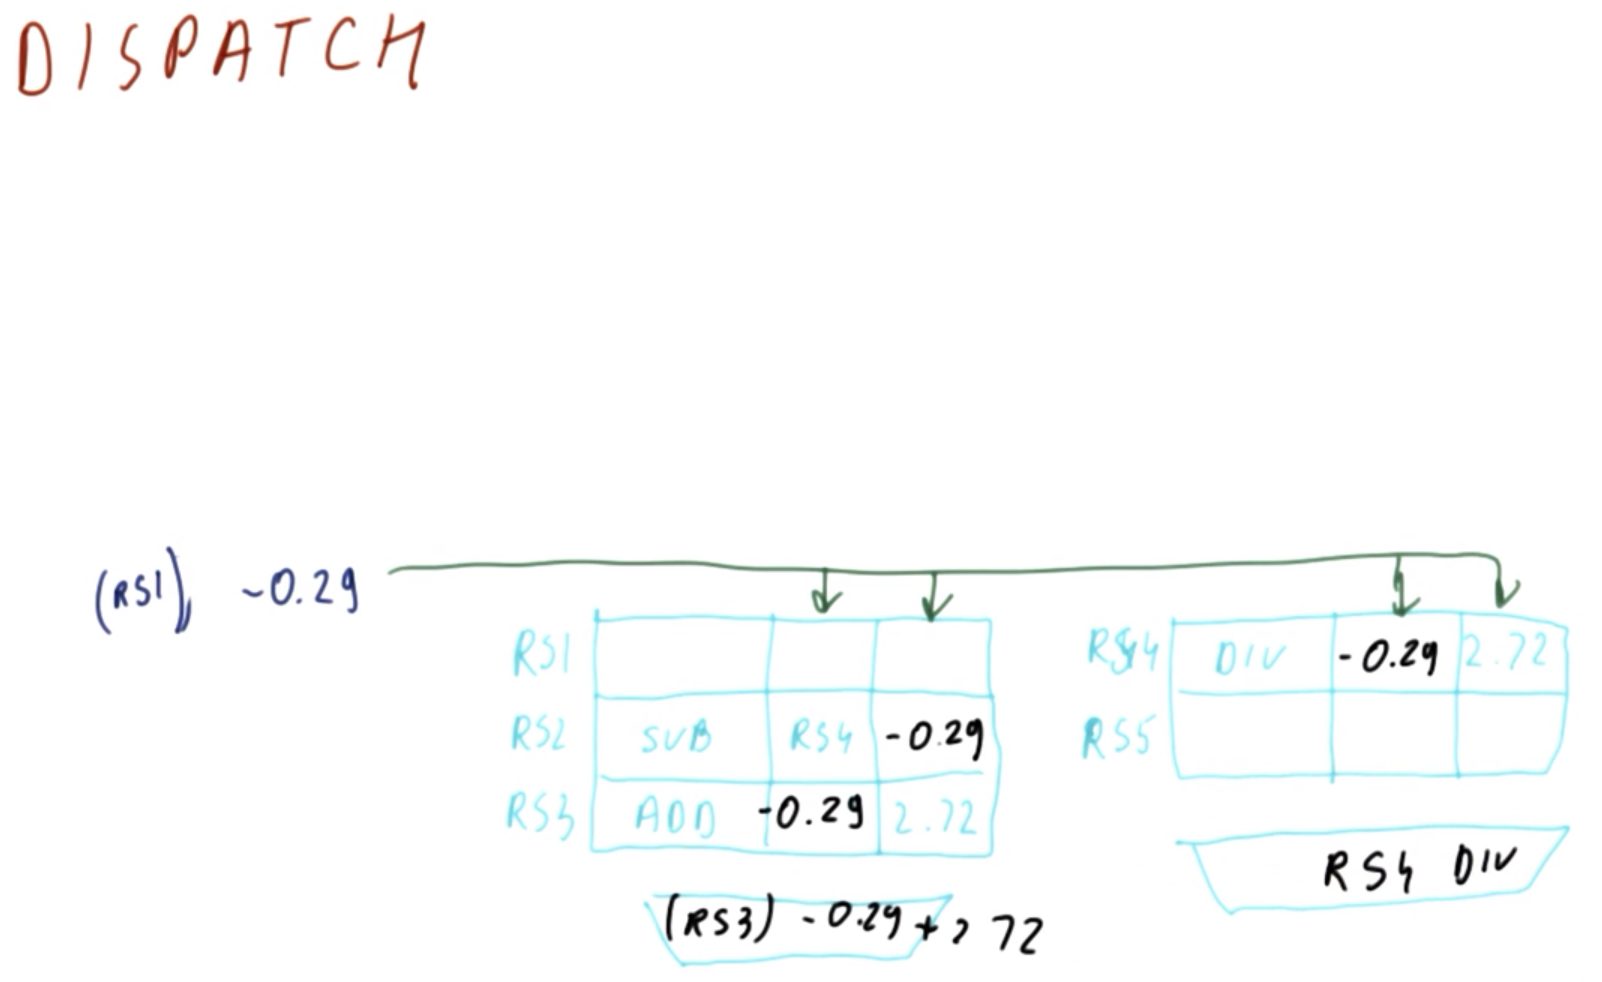 DISPATCH
(RS1), -0.29
RS1
RS2 SUB RS4 -0.29
RS3 ADD -0.29 2.72
(RS3) -0.29 + 2 72
RS4 DIV -0.29 2.72
RS5
RS4 DIV